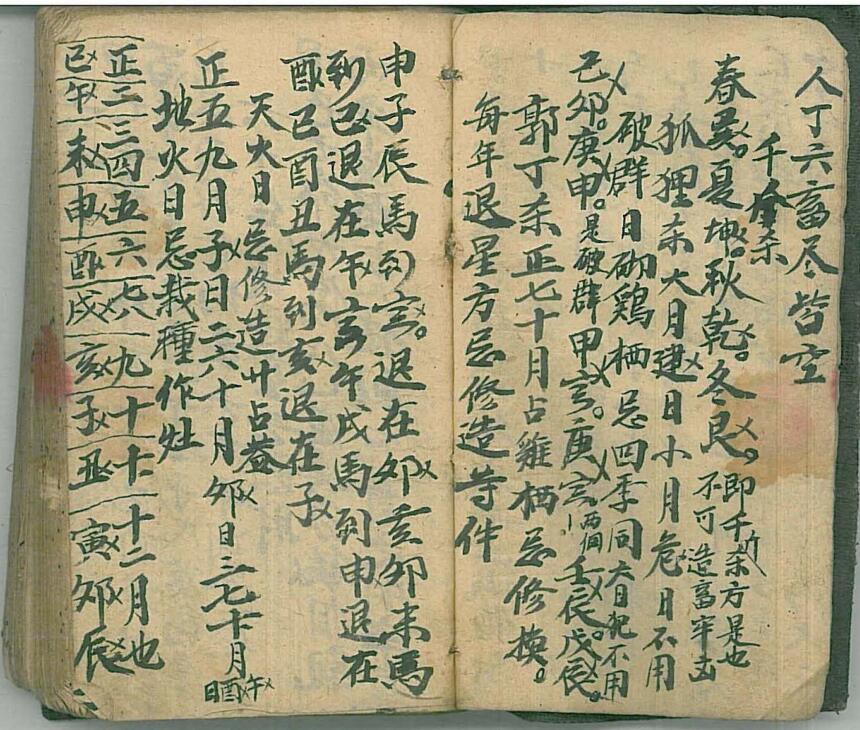 人丁六畜尽皆空
千斧杀
春巽。夏坤。秋乾。冬艮。即千斤杀方是也
不可造畜牢击
狐狸杀大月建日小月危日不用
破群日砌鸡栖忌四季同六日犯不用
己卯。庚申。是破群甲寅。庚寅。两個壬辰。戊辰。
郭丁杀正七十月占雞栖忌修換。
每年退星方忌修造等件
申子辰馬到寅。退在卯亥卯未馬
到巳退在午寅午戌馬到申退在
酉巳酉丑馬到亥退在子
天火日忌修造廾占盖
正五九月子日二六十月卯日三七十一月午酉日
地火日忌栽種作灶
正二三四五六七八九十十一十二月也
巳午未申酉戌亥子丑寅卯辰